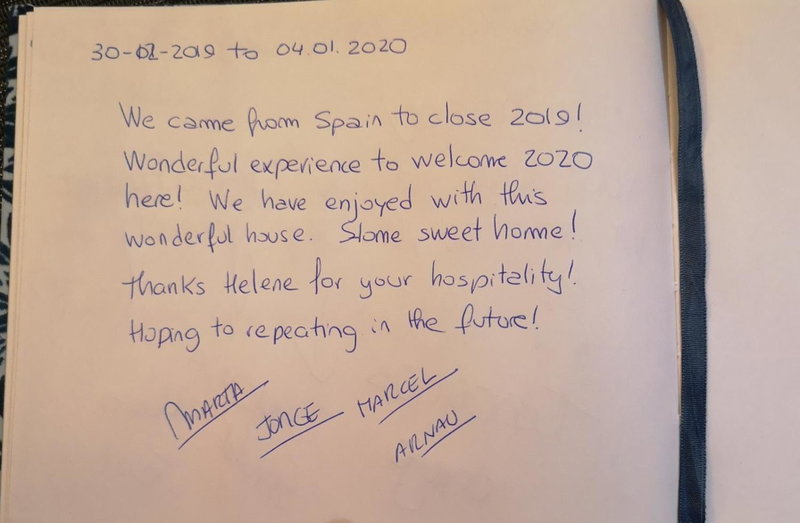 30-02-2019 to 04.01.2020
We came from Spain to close 2019!
Wonderful experience to welcome 2020
here! We have enjoyed with this
wonderful house. Slome sweet home!
Thanks Helene for your hospitality!
Hoping to repeating in the future!
MARTA
JORGE
MARCEL
ARNAU